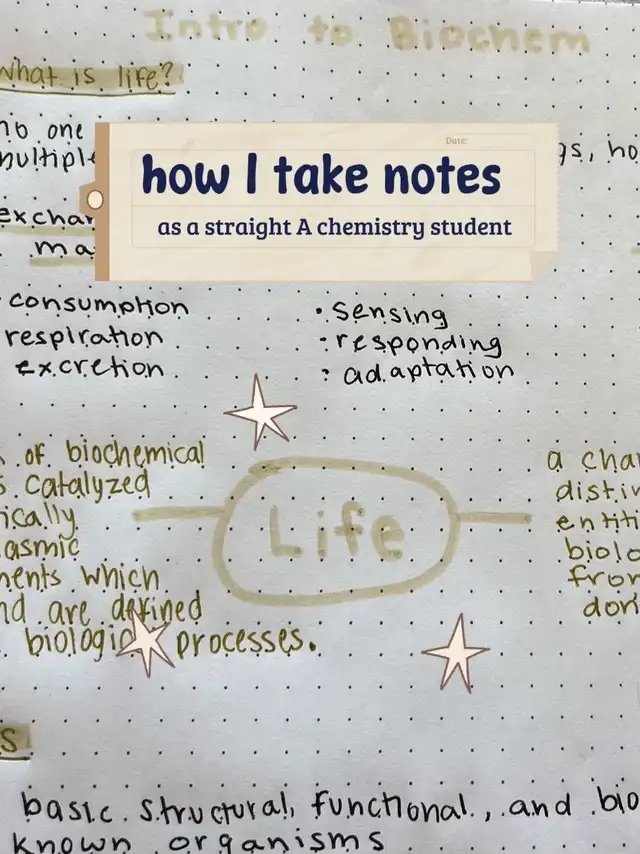 Intro to Biochem
What is life?
no one
multiple
gs, ho
exchan
ma
Date:
how I take notes
as a straight A chemistry student
consumption
respiration
excretion
• sensing
• responding
• adaptation
of biochemical
s catalyzed
ically
asmic
ments which
nd are defined
biologic processes.
Life
a char
distin
entiti
biolo
from
don
s
basic structural, functional, and bio
known organisms